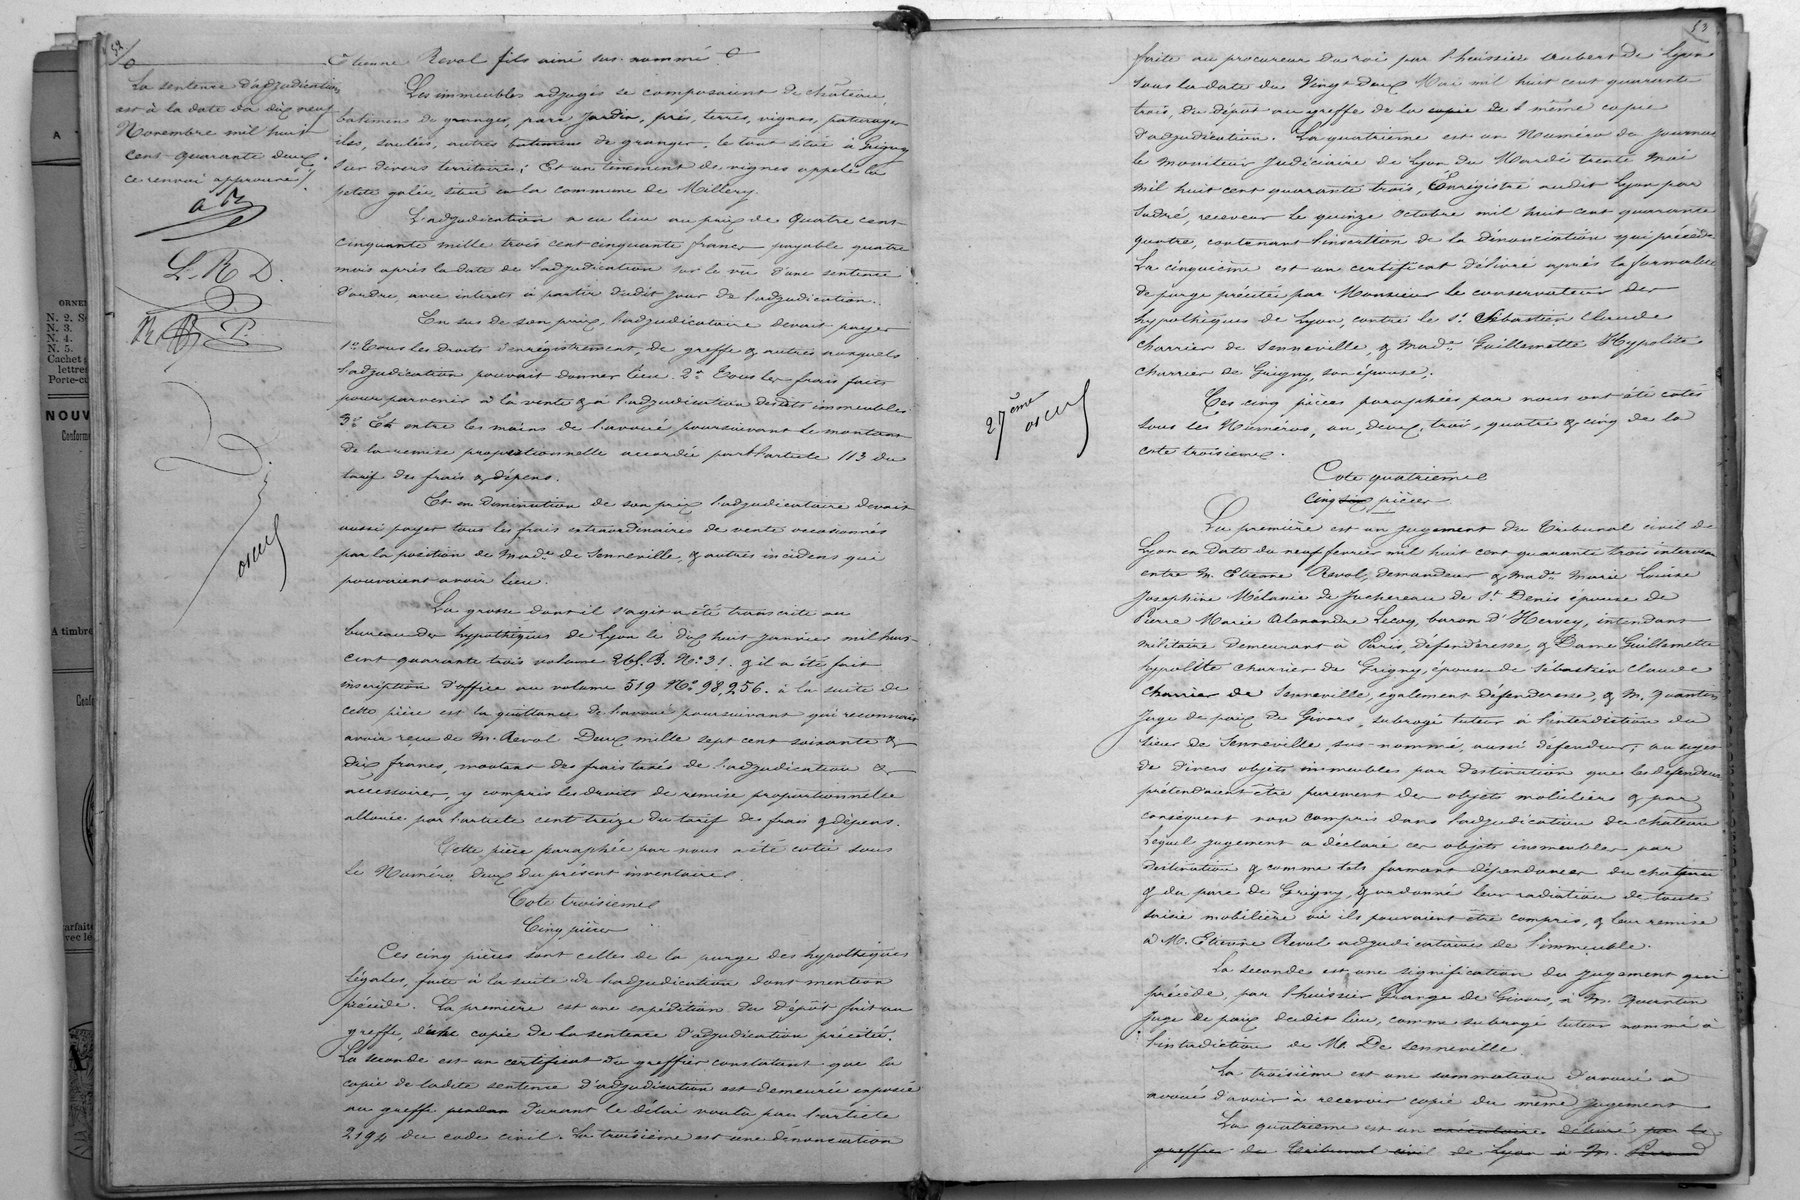 52
La sentence d'adjudication
est à la date du dix neuf
Novembre mil huit
cent quarante deux.
ce renvoi approuvé
L. R D.
Etienne Revol fils ainé sus-nommé
Les immeubles adjugés se composaient de château,
batimens de granger, parc jardin, prés, terres, vignes, paturages
iles, saulées, autres batimens de granger, le tout situé à Grigny
sur divers territoires; Et un tènement de vignes appelé la
petite galée, situé en la commune de Millery.
L'adjudication a eu lieu au prix de Quatre cent
cinquante mille trois cent cinquante francs payable quatre
mois après la date de l'adjudication sur le vu d'une sentence
d'ordre, avec intérêts à partir dudit jour de l'adjudication.
En sus de son prix, l'adjudicataire devait payer
1o Tous les droits d'enrégistrement, de greffe & autres auxquels
l'adjudication pouvait donner lieu. 2o Tous les frais faits
pour parvenir à la vente & à l'adjudication desdits immeubles
3o Et entre les mains de l'avoué poursuivant le montant
de la remise proportionnelle accordée par l'article 113 du
tarif des frais & dépens.
Et en diminution de son prix l'adjudicataire devait
aussi payer tous les frais extraordinaires de vente occasionnés
par la position de Made de Senneville, & autres incidens qui
pouvaient avoir lieu.
La grosse dont il s'agit a été transcrite au
bureau des hypothèques de Lyon le dix huit Janvier mil huit
cent quarante trois volume No 31. & il a été fait
inscription d'office au volume 519 No 98,256. à la suite de
cette pièce est la quittance de l'avoué poursuivant qui reconnait
avoir reçu de M. Revol Deux mille sept cent soixante &
dix francs, montant des frais taxés de l'adjudication &
accessoires, y compris les droits de remise proportionnelle
allouée par l'article cent treize du tarif des frais & dépens.
Cette pièce paraphée par nous a été cotée sous
le Numéro deux du présent inventaire.
Cote troisième
Cinq pièces
Ces cinq pièces sont celles de la purge des hypothèques
légales, faite à la suite de l'adjudication dont mention
précède. La première est une expédition du dépôt fait au
greffe, d'une copie de la sentence d'adjudication précitée.
La seconde est un certificat du greffier constatant que la
copie de ladite sentence d'adjudication est demeurée exposée
au greffe pendan durant le délai voulu par l'article
2194 du code civil. La troisième est une dénonciation
53
faite au procureur du roi par l'huissier Aubert de Lyon
sous la date du Vingt deux Mai mil huit cent quarante
trois, du dépôt au greffe de la copie de l même copie
d'adjudication. La quatrième est un Numéro du Journal
le Moniteur Judiciaire de Lyon du Mardi trente Mai
mil huit cent quarante trois, Enrégistré audit Lyon par
Sudré, receveur le quinze octobre mil huit cent quarante
quatre, contenant l'insertion de la dénonciation qui précède
La cinquième est un certificat délivré après la formalité
de purge précitée par Monsieur le conservateur des
hypothèques de Lyon, contre le sr Sébastien Claude
Charrier de Senneville, & Made Guillemette Hypolite
Charrier de Grigny, son épouse.
Ces cinq pièces paraphées par nous ont été cotés
sous les Numéros, un, deux, trois, quatre & cinq de la
cote troisième.
27ème
Cote quatrième
Cinq six pièces
La première est un jugement du Tribunal civil de
Lyon en date du neuf février mil huit cent quarante trois intervenu
entre M. Etienne Revol, demandeur & Made Marie Louise
Joséphine Mélanie de Juchereau de St Denis épouse de
Pierre Marie Alexandre Lecoq, baron d'Hervey, intendant
militaire demeurant à Paris, défenderesse, & Dame Guillemette
hypolite Charrier de Grigny, épouse de Sébastien Claude
Charrier de Senneville, également défenderesse, & M. Quantin
Juge de paix de Givors, subrogé tuteur à l'interdiction du
sieur de Senneville sus-nommé, aussi défendeur, au sujet
de divers objets immeubles par destination que les défendeurs
prétendaient être purement des objets mobiliers & par
conséquent non compris dans l'adjudication du château
Lequel jugement a déclaré ces objets immeubles par
destination & comme tels formant dépendances du château
& du parc de Grigny, & ordonné leur radiation de toute
saisie mobilière où ils pouvaient être compris, & leur remise
à M. Etienne Revol adjudicataire de l'immeuble.
La seconde est une signification du jugement qui
précède, par l'huissier Grange de Givors, à M. Quantin
Juge de paix dudit lieu, comme subrogé tuteur nommé à
l'interdiction de Mr De Senneville.
La troisième est une sommation d'avoué à
avoué d'avoir à recevoir copie du même jugement
La quatrième est un exécutoire délivré par le
greffier du tribunal civil de Lyon à M.
A
ORNEM
N. 2. S
N. 3.
N. 4.
N. 5.
Cachet
lettres
Porte-c
NOUV
Conforme
A timbre
Confo
arfaite
vec lé